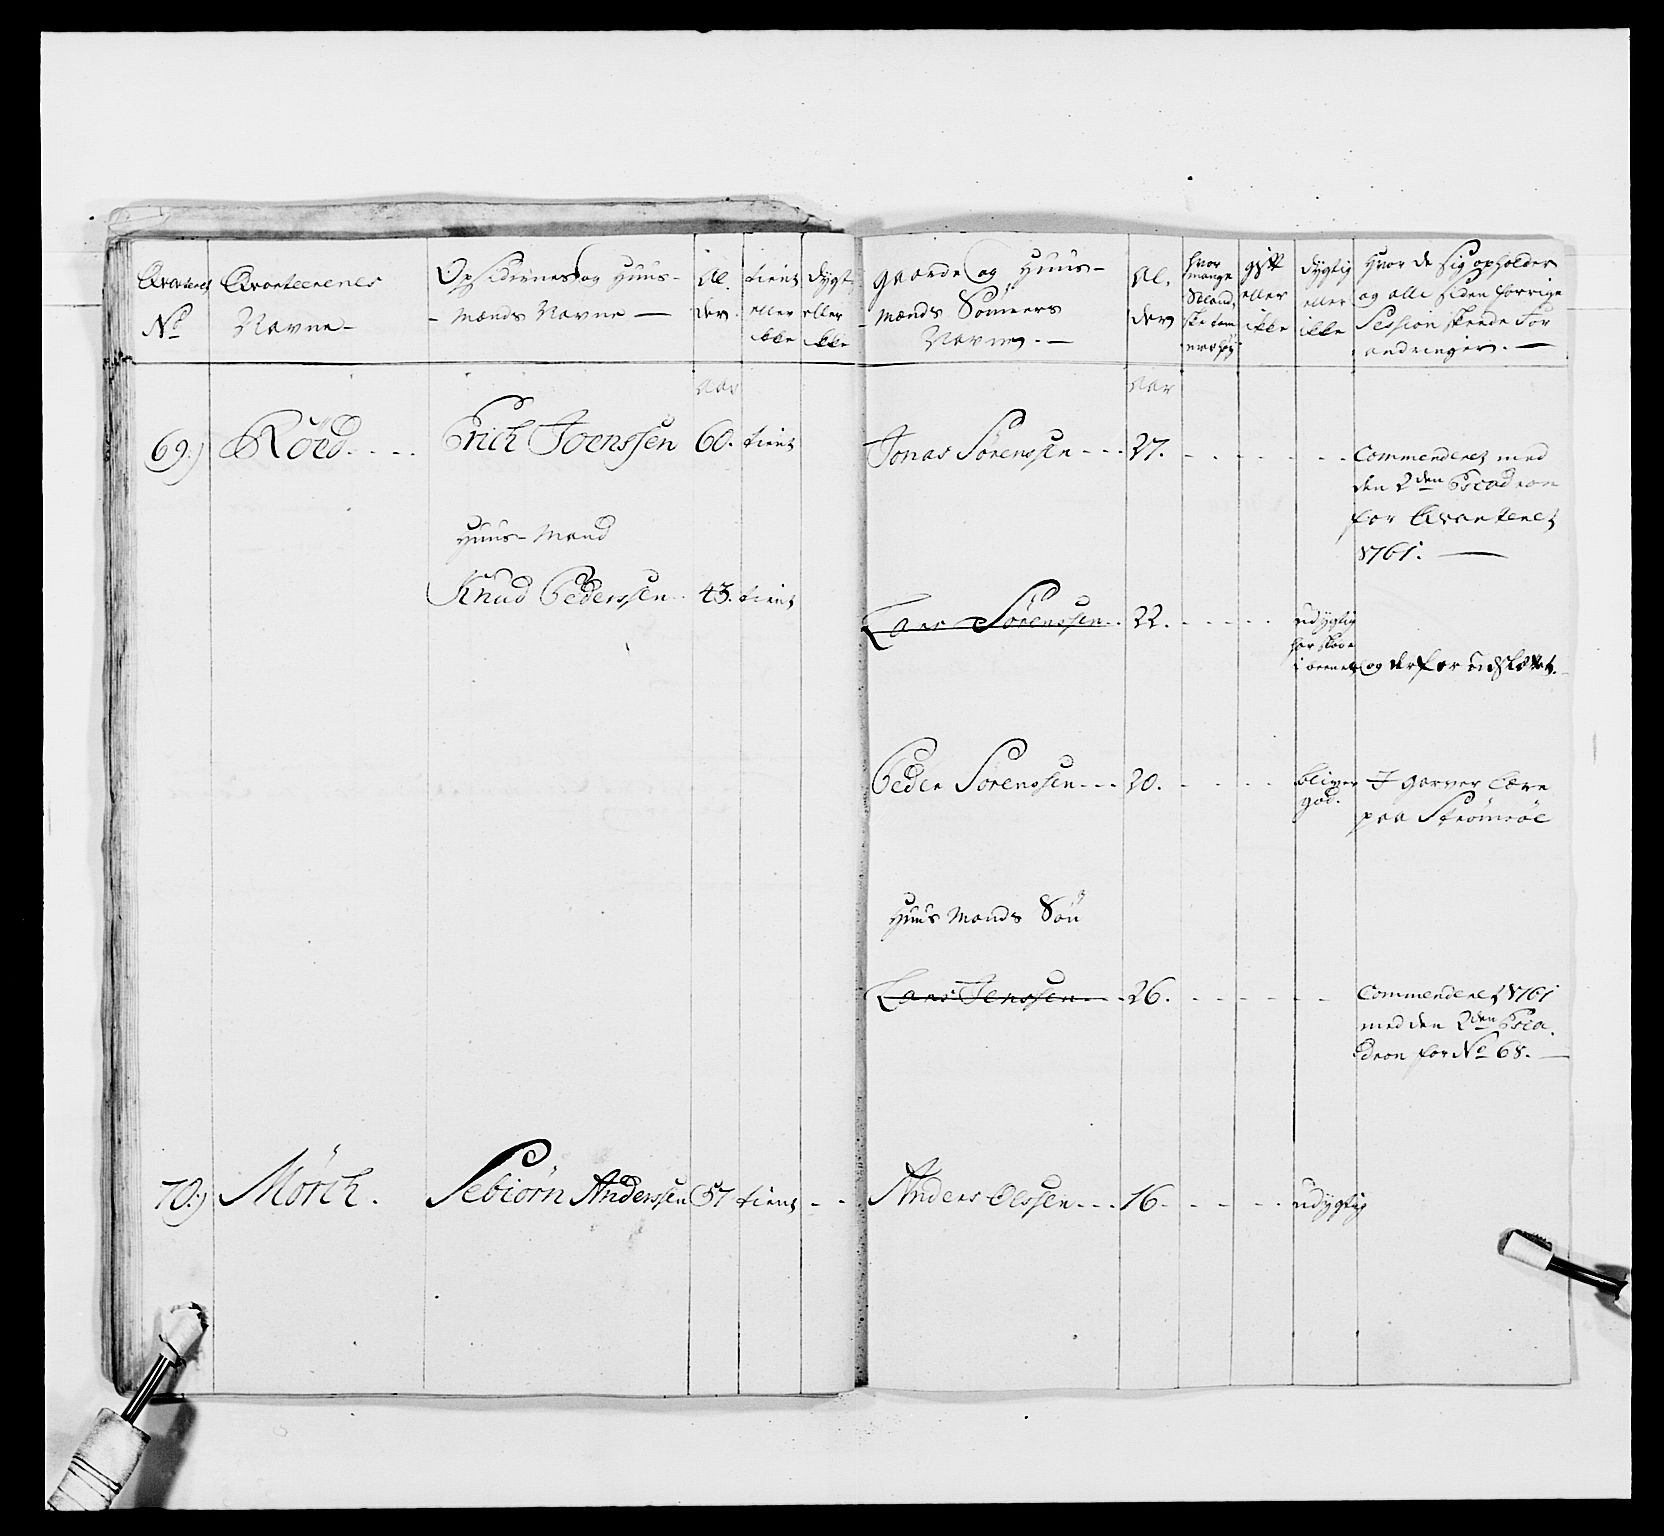 Qvarteret
No
Qvarteerenes
Navne-
Opsidernes og Huus-
- Mænds Navne -
Al.
der.
tient
eller
ikke
dygt.
eller
ikke
Gaarde og Huus-
- Mænds Sönners
Navne. -
Al.
der
hvor
mange
Siælland,
ske tom
mer høÿ
gift
eller
ikke
dygtig
eller
ikke
Hvor de sig opholder
og alle siden forrige
Session skeede For
andringer. -
Aar
Aar
69.) Röed. . . . Erich Joenssen 60. tient Jonas Sörenssen - - - 27. - - - - - - Commenderet med
den 2den Escadron
for Qvarteret
1761. -
Huus-Mand
Knud Pederssen. . 43. tient
Lars Sörenssen. . 22. - - - - - udygtig
har skade
i beenet og derfor udslættet.
Peder Sörenssen - - - 20. - - - - bliver
god.
I garver lære
paa Strömsöe
Huus Mands Sön
Lars Jenssen - - - 26. - - - - - Commenderet 1761
med den 2den Esca,
dron for No 68. -
70.) Mörch. Sebiörn Anderssen 57 tient - - Anders Olssen - - - 16. - - - - udygtig